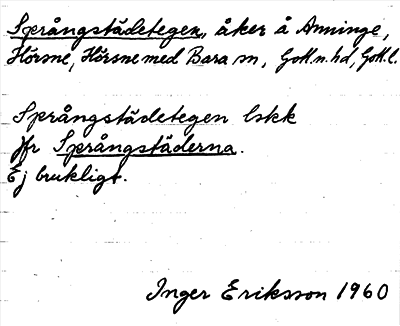 Språngstädetegen, åker å Anninge,
Hörsne, Hörsne med Bara sn, Gotl.n.hd, Gotl.l.
Språngstädetegen lskk
Jfr Språngstäderna.
Ej brukligt.
Inger Eriksson 1960